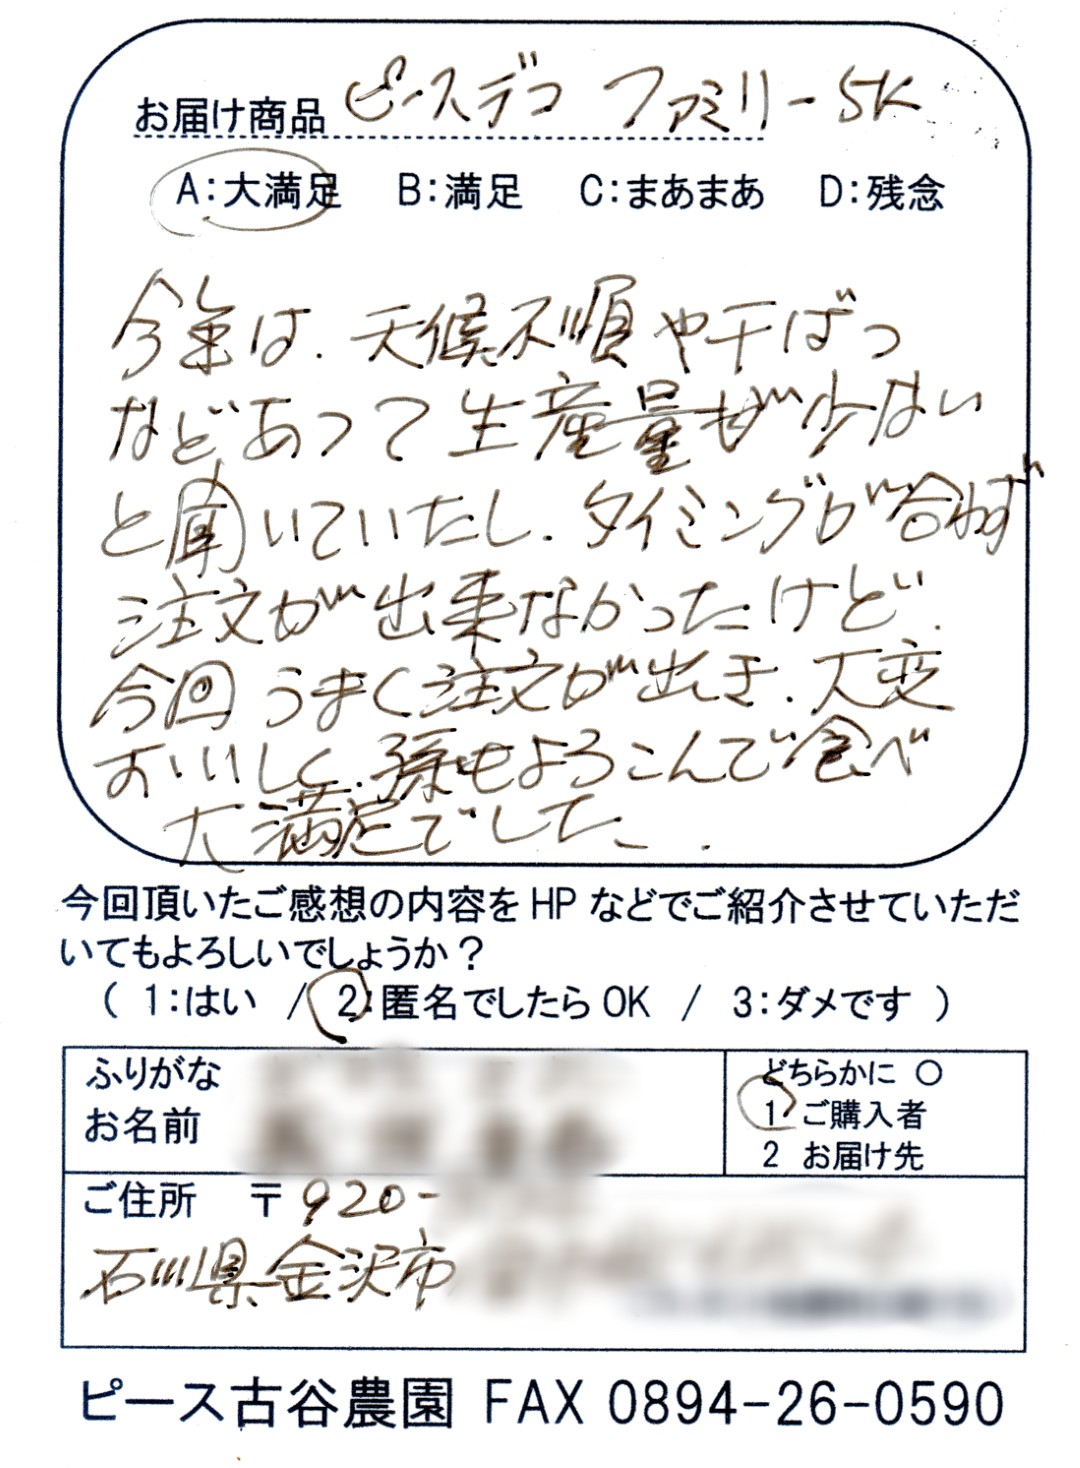 お届け商品 ピースデコ ファミリー 5K
A:大満足 B:満足 C:まあまあ D:残念
今年は、天候不順や干ばつ
などあって生産量が少ない
と聞いていたし、タイミングが合わず
注文が出来なかったけど、
今回うまく注文が出き、大変
おいしく、孫もよろこんで食べ
大満足でした。
今回頂いたご感想の内容をHPなどでご紹介させていただ
いてもよろしいでしょうか？
( 1:はい / 2:匿名でしたらOK / 3:ダメです )
ふりがな
お名前
どちらかに ○
1 ご購入者
2 お届け先
ご住所 〒920-
石川県金沢市
ピース古谷農園 FAX 0894-26-0590